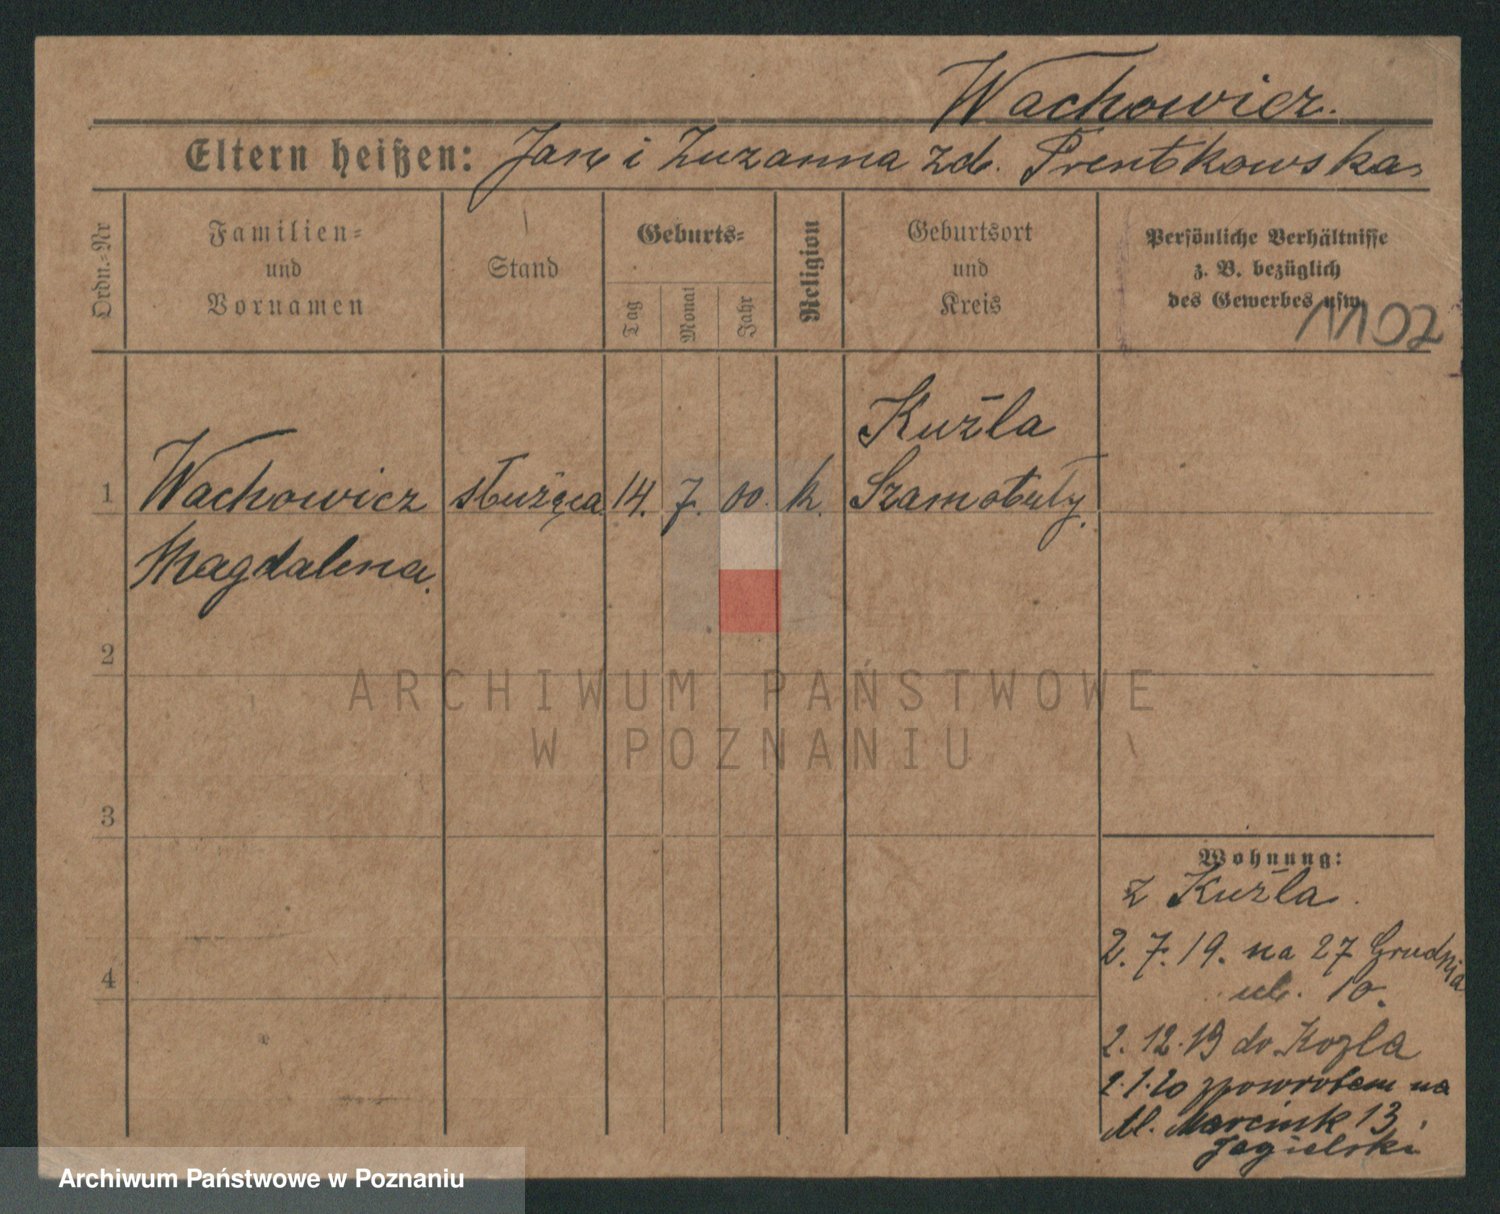 Wachowicz.
Eltern heißen: Jan i Zuzanna zd. Prentkowska
Ordn.-Nr
Familien-
und
Vornamen
Stand
Geburts-
Tag
Monat
Jahr
Religion
Geburtsort
und
Kreis
Persönliche Verhältnisse
z. B. bezüglich
des Gewerbes usw.
1102
Kuźla
1 Wachowicz służąca 14. 7. 00. k. Szamotuły.
Magdalena.
2
ARCHIWUM PAŃSTWOWE
W POZNANIU
3
Wohnung:
z Kuźla.
2. 7. 19. na 27 Grudnia
4
ul. 10.
2. 12. 19 do Kozla
2. 1. 20 zpowrotem na
Al. Marcink 13
Jagielski
Archiwum Państwowe w Poznaniu